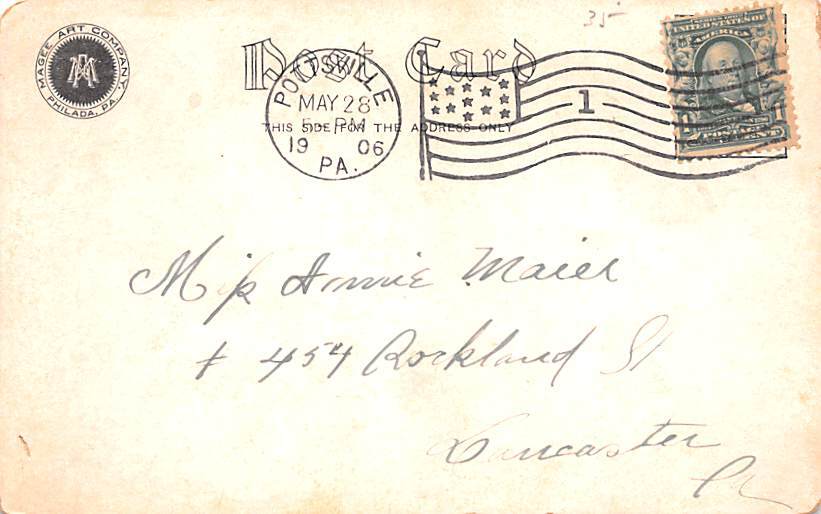 MAGEE ART COMPANY.
PHILADA, PA.
MA
35-
Post Card
THIS SIDE FOR THE ADDRESS ONLY
POTTSVILLE
MAY 28
5- PM
19 06
PA.
1
SERIES 1902
UNITED STATES OF
AMERICA
1 1
Miss Annie Maier
# 454 Rockland St
Lancaster
Pa